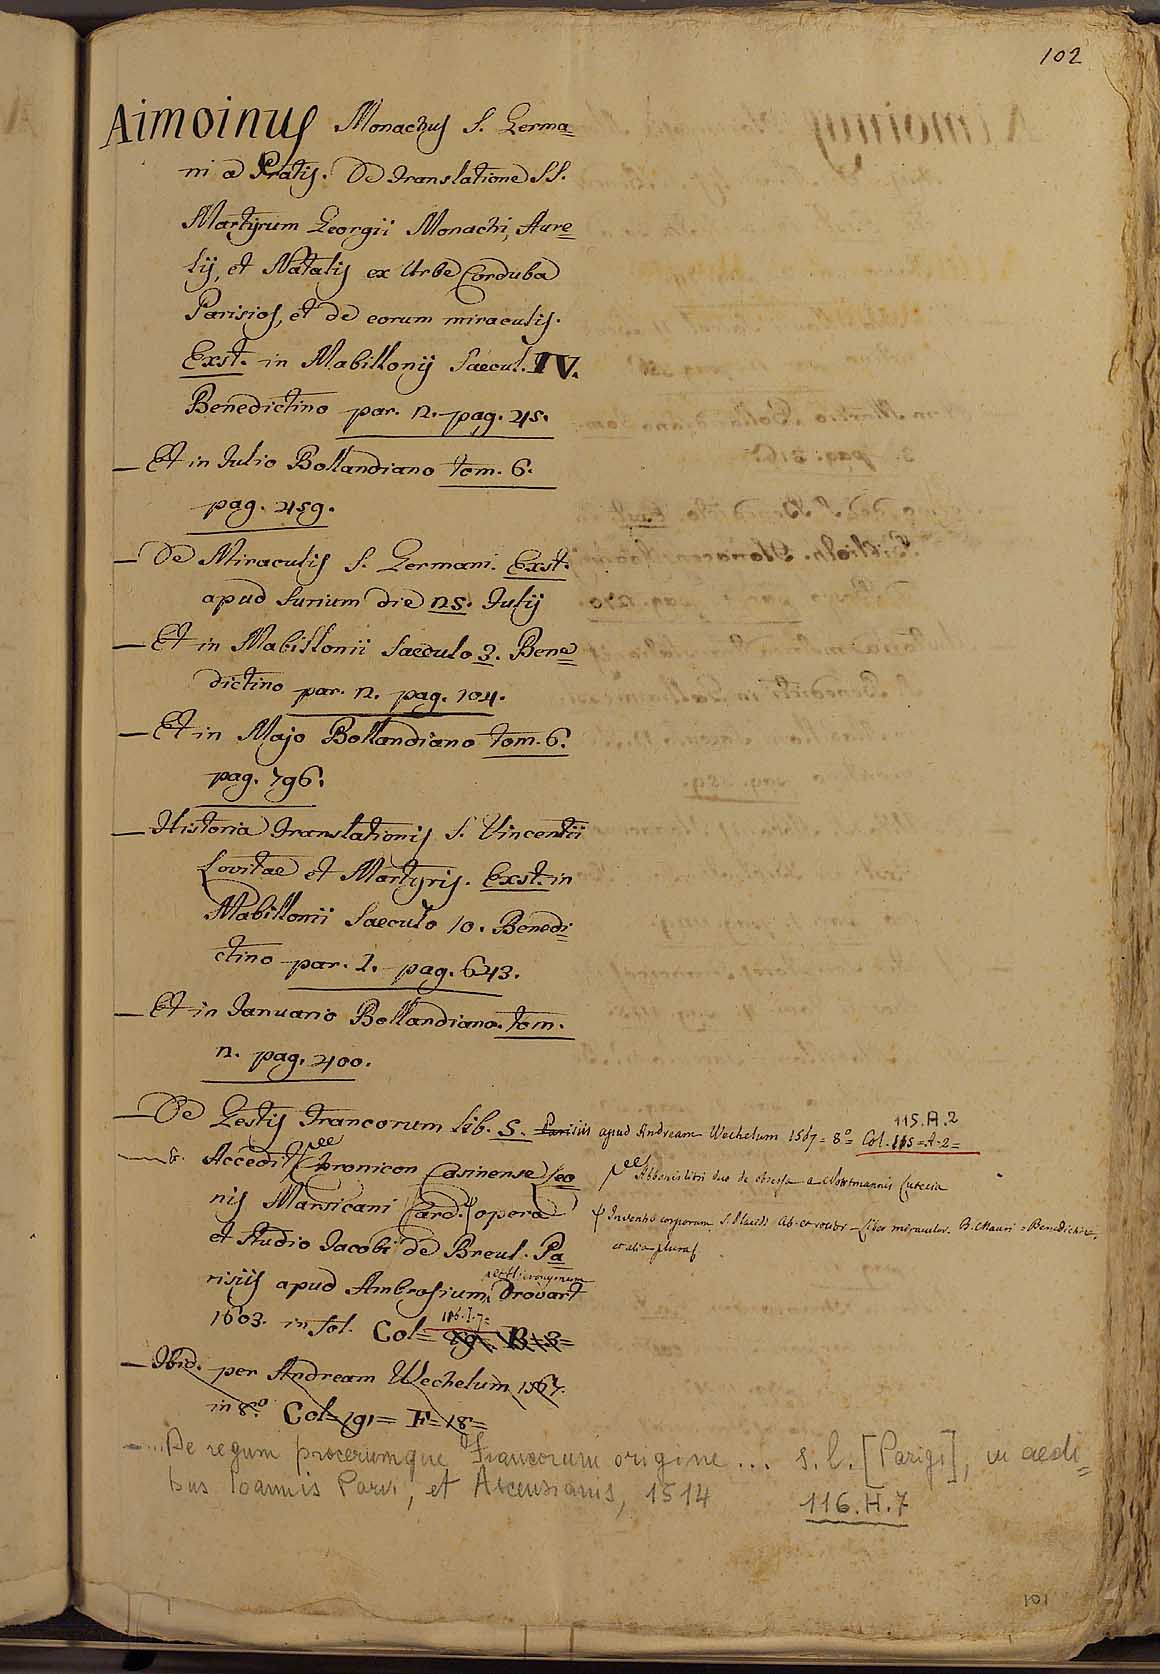 102
Aimoinus Monachus S. Germa=
ni a Pratis. De translatione SS.
Martyrum Georgii Monachi, Aure=
lij, et Natalis ex Urbe Corduba
Parisios, et de eorum miraculis.
Exst. in Mabillonij Saecul. IV.
Benedictino par. 2. pag. 45.
— Et in Julio Bollandiano tom. 6.
pag. 459.
— De Miraculis S. Germani. Exst.
apud Surium die 25. Julij
— Et in Mabillonii Saeculo 3. Bene=
dictino par. 2. pag. 104.
— Et in Majo Bollandiano tom. 6.
pag. 796.
— Historia translationis S. Vincentii
Levitae et Martyris. Exst. in
Mabillonii Saeculo 10. Benedi=
ctino par. 1. pag. 643.
— Et in Januario Bollandiano tom.
2. pag. 400.
— De Gestis Francorum lib. 5. Parisiis apud Andream Wechelum 1567 = 8º = Col. 115 = A-2 =
115.A.2
— &. Accedit Chronicon Casinense Leo
Abbonis libri duo de obsessa a Nortmannis Lutecia
nis Marsicani Card. opera
Inventio corporum S. Placidi Ab. et
Liber miraculor. B. Mauri = Benedictine,
et alia plura
et studio Jacobi de Breul. Pa
risiis apud Ambrosium, et Hieronymum Drovart
1603. in fol. Col= 116.I.7= 19= B=3=
— Ibid. per Andream Wechelum 1567.
in 8º. Col=191= F=18=
— ... De regum procerumque Francorum origine ... s. l. [Parigi], in aedi=
bus Ioannis Parvi, et Ascensianis, 1514
116.H.7
101